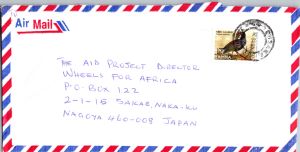 Air Mail
THE AID PROJECT DIRECTOR
WHEELS FOR AFRICA
P.O-BOX 122
2-1-15 SAKAE, NAKA-KU
NAGOYA 460-008 JAPAN